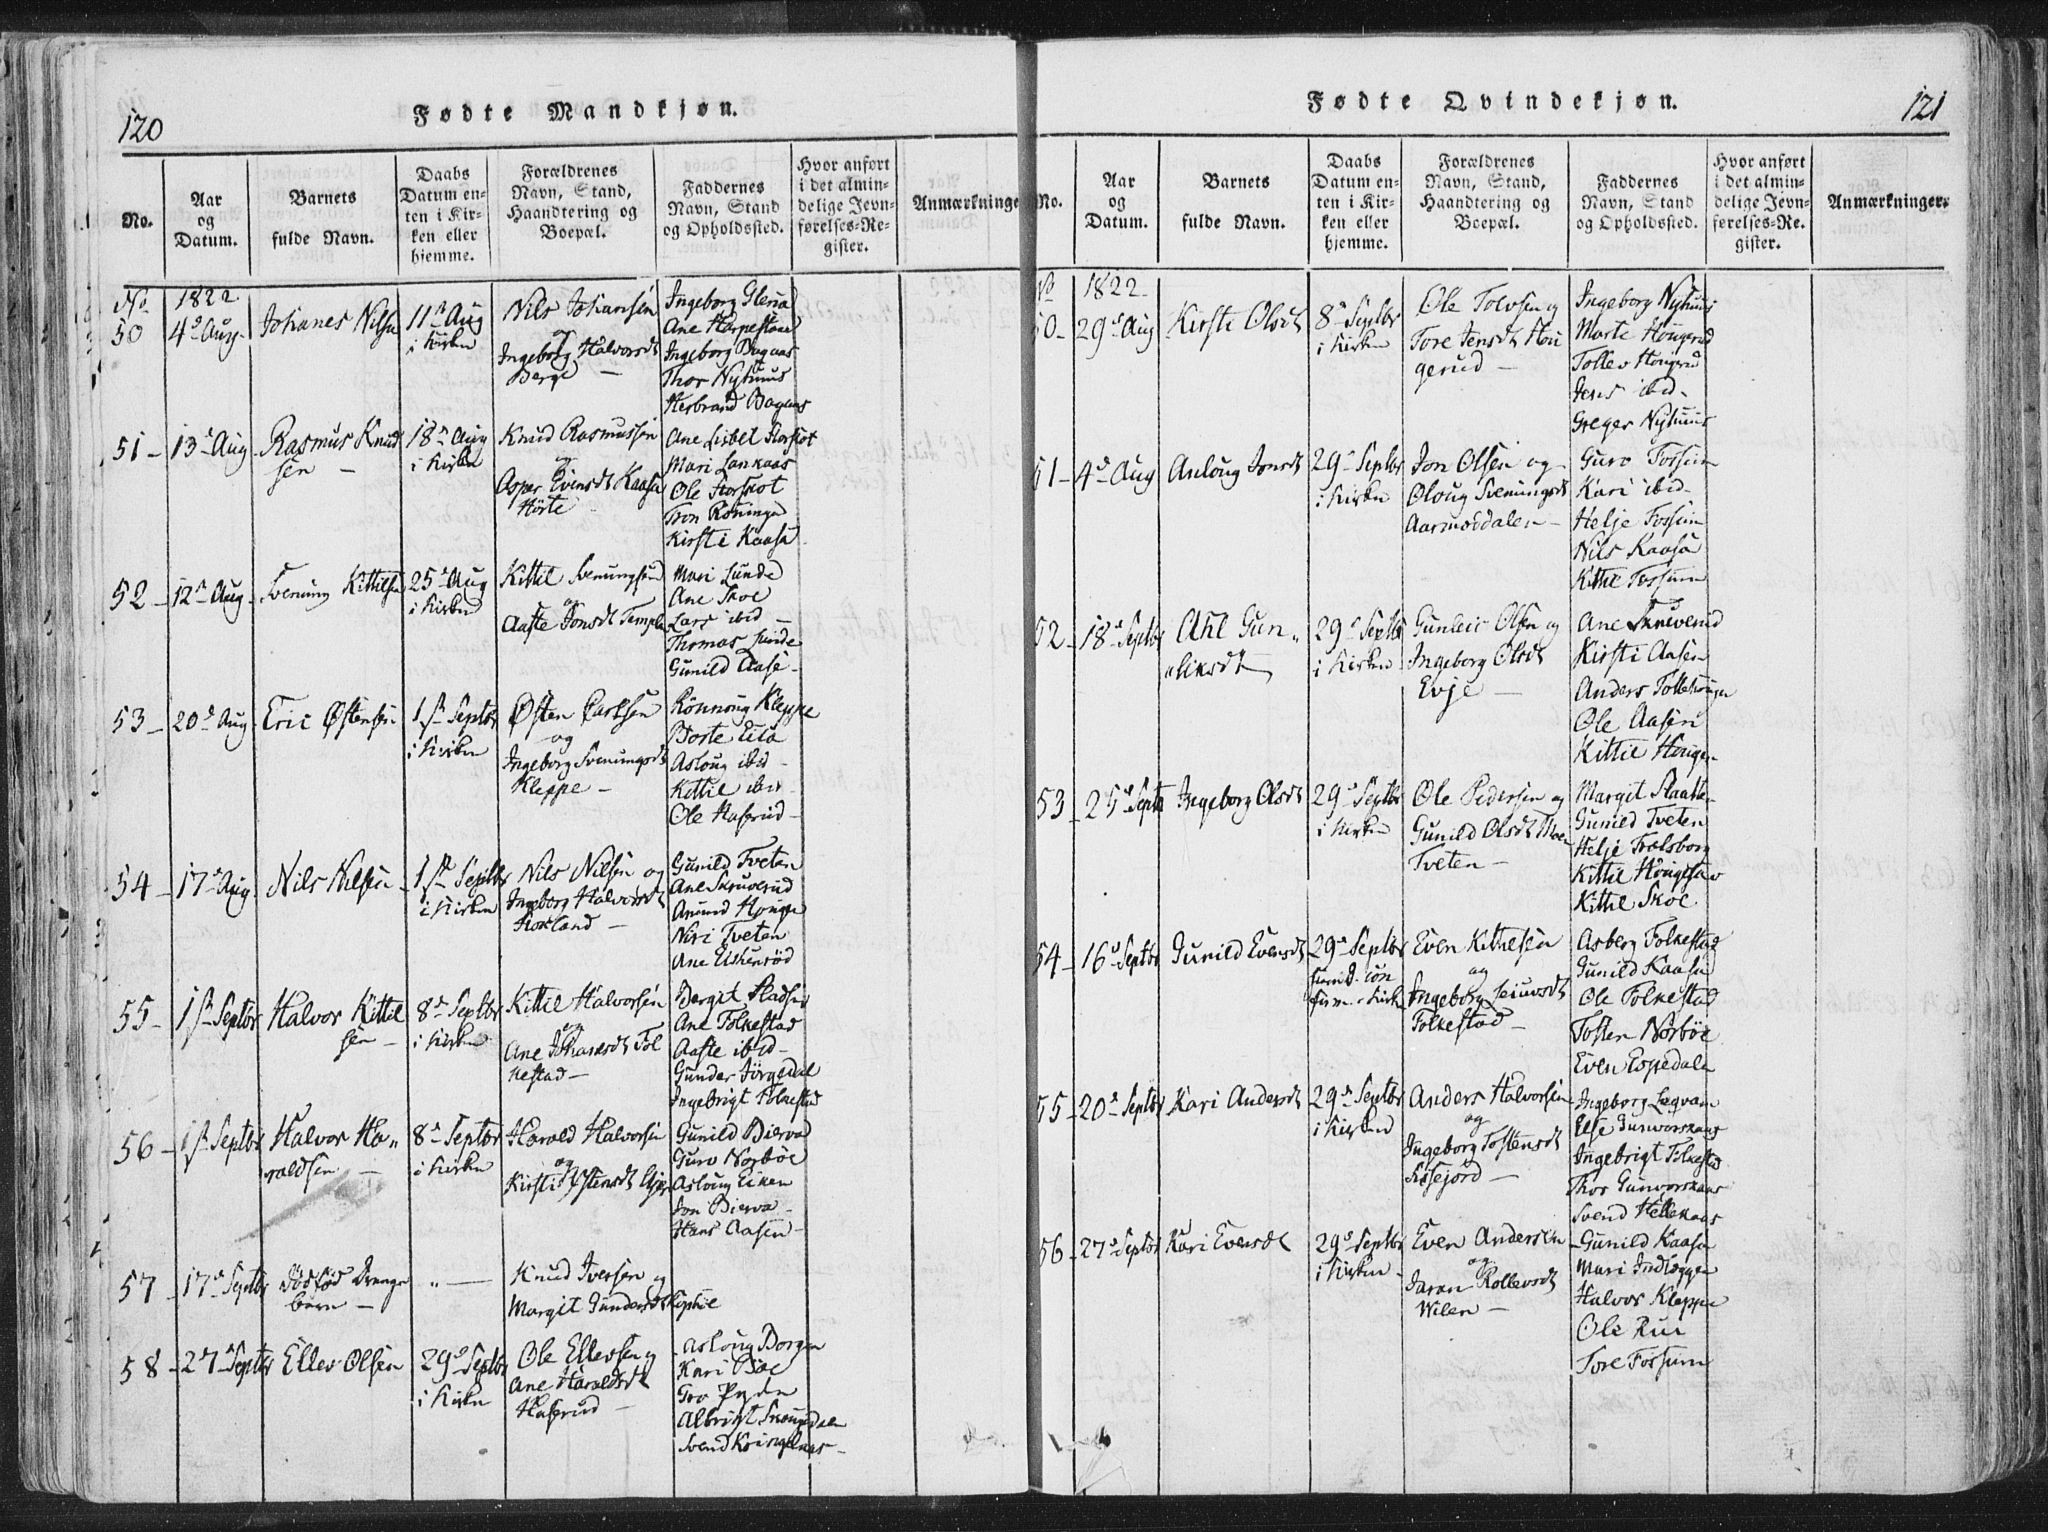 120
Fødte Mandkjøn.
No.
Aar
og
Datum.
Barnets
fulde Navn.
Daabs
Datum en-
ten i Kir-
ken eller
hjemme.
Forældrenes
Navn, Stand,
Haandtering og
Boepæl.
Faddernes
Navn, Stand
og Opholdssted.
Hvor anført
i det almin-
delige Jevn-
førelses-Re-
gister.
Anmærkninge
No
1822
50
4d Aug.
Johanes Nilsen
11te Aug
i Kirken
Nils Johansen
og
Ingeborg Halvorsdt
Berge —
Ingeborg Glena
Ane Harpestaa
Ingeborg Bagaas
Thor Nyhuus
Herbrand Bagaas
51 –
13d Aug
Rasmus Knud
sen –
18de Aug
i Kirken
Knud Rasmussen
og
Asper Evensdt Kaasa
Hörte
Ane Lisbet Storskot
Mari Lankaas
Ole Storskot
Tron Röninge
Kirsti Kaasa
52 –
12te Aug.
Svenung Kittilsen
25d Aug
i Kirken
Kittil Svenungsen
og
Aaste Jonsdt Temple
Mari Lunde
Ane Skoe
Lars ibid –
Thomas Lunde
Gunild Aase –
53 –
20d Aug.
Eric Østensen
1ste Septbr
i Kirken
Østen Carlsen
og
Ingeborg Svenungsdt
Kleppe –
Rönnoug Kleppe
Borte Eita
Asloug ibid –
Kittil ibid –
Ole Haserud –
54 –
17d Aug
Nils Nilsen
1ste Septbr
i Kirken
Nils Nilsen og
Ingeborg Halvorsdt
Horland –
Gunild Tveten
Ane Skruverud
Amund Houge
Niri Tveten
Ane Eskensöd
55 –
1ste Septbr
Halvor Kittil
sen –
8de Septbr
i Kirken
Kittil Halvorsen
og
Ane Johanesdt Fol
kestad –
Bergit Stadsen
Ane Folkestad
Aaste ibid –
Gunder Jörgedal
Ingebrigt Folkestad
56 –
1ste Septbr
Halvor Ha„
raldsen –
8de Septbr
i Kirken
Harald Halvorsen
og
Kirsti Østensdt
Gunild Bierva
Guro Norböe
Asloug Eiken
Jon Bierva –
Hans Aasen –
57 –
17d Septbr
Dödföd Drenge
barn –
„ —
Knud Iversen og
Margit Gundersdt
58 –
27d Septbr
Ellev Olsen
29d Septbr
i Kirken
Ole Ellevsen og
Ane Haraldsdt
Haserud –
Asloug Borgen
Kari Böe
Gro
Albrigt Skougdalen
Svend Kringelaas –
121
Fødte Qvindekjøn.
No.
Aar
og
Datum.
Barnets
fulde Navn.
Daabs
Datum en-
ten i Kir-
ken eller
hjemme.
Forældrenes
Navn, Stand,
Haandtering og
Boepæl.
Faddernes
Navn, Stand
og Opholdssted.
Hvor anført
i det almin-
delige Jevn-
førelses-Re-
gister.
Anmærkninger.
No
1822
50 –
29d Aug
Kirsti Olsdt
8de Septbr
i Kirken
Ole Tovsen og
Tore Jensdt Hou
gerud –
Ingeborg Nyhuus
Marte Hougerud
Tollev Hougerud
Jens ibid –
Greger Nyhuus
51 –
4d Aug
Anloug Jonsdt
29de Septbr
i Kirken
Jon Olsen og
Oloug Svenungsdt
Aarmoddalen –
Guro Fossum
Kari ibid –
Helje Fossum
Nils Kaasa
Kittil Fossum
52 –
18d Septbr
Ahl Gun„
„leiksdt
29de Septbr
i Kirken
Gunleic Olsen og
Ingeborg Olsdt
Evje –
Ane Skruverud
Kirsti Aasen
Anders Follehougen
Ole Aasen
Kittil Hougen
53 –
25d Septbr
Ingeborg Olsdt
29d Septbr
i Kirken
Ole Pedersen og
Gunild Olsdt Moen
Tveten –
Margit Slaatta
Gunild Tveten
Helje Trælsborg
Kittil Hougesav
Kittil Skoe
54 –
16d Septbr
Gunild Evensdt
29d Septbr
Even Kittelsen
og
Ingeborg
Folkestad –
Asberg Folkestad
Gunild Kaasa
Ole Folkestad
Tosten Norböe
Even Espedalen
55 –
20d Septbr
Kari Andersdt
29d Septbr
i Kirken
Anders Halvorsen
og
Ingeborg Tostensdt
Ingeborg Legvam
Else Gunvorskaas
Ingebrigt Folkestad
Thor Gunvorskaas
Svend Hellekaas
56 –
27d Septbr
Kari Evensdt
29d Septbr
i Kirken –
Even Andersen
og
Jaran Rollevsdt
Wilen –
Gunild Kaasa
Mari Indlæggen
Halvor Kleppe
Ole Ruu
Tore Fossum